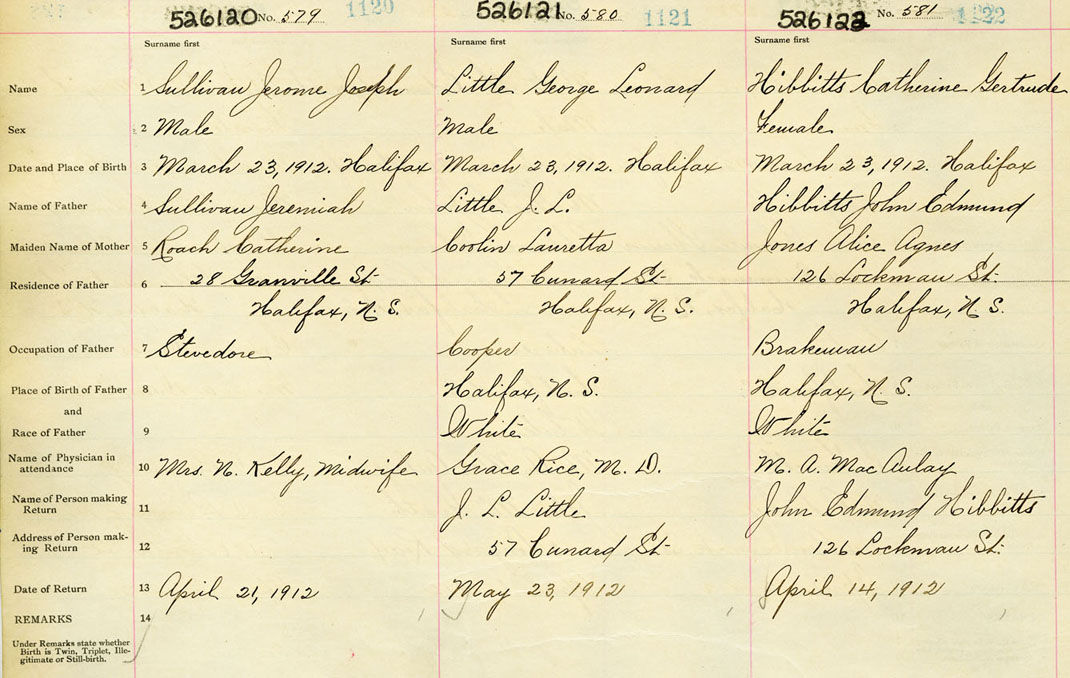 526120 No. 579 1120 526121 No. 580 1121 526122 No. 581 1122
Surname first Surname first Surname first
Name 1 Sullivan Jerome Joseph Little George Leonard Hibbitts Catherine Gertrude
Sex 2 Male Male Female
Date and Place of Birth 3 March 23, 1912. Halifax March 23, 1912. Halifax March 23, 1912. Halifax
Name of Father 4 Sullivan Jeremiah Little J. L. Hibbitts John Edmund
Maiden Name of Mother 5 Roach Catherine Coolin Lauretta Jones Alice Agnes
Residence of Father 6 28 Granville St 57 Cunard St 126 Lockman St.
Halifax, N. S. Halifax, N. S. Halifax, N S.
Occupation of Father 7 Stevedore Cooper Brakeman
Place of Birth of Father 8 Halifax, N. S. Halifax, N. S.
and
Race of Father 9 White White
Name of Physician in
attendance 10 Mrs. N. Kelly, Midwife Grace Rice, M. D. M. A. MacAulay
Name of Person making
Return 11 J. L. Little John Edmund Hibbitts
Address of Person mak-
ing Return 12 57 Cunard St 126 Lockman St.
Date of Return 13 April 21, 1912 May 23, 1912 April 14, 1912
REMARKS 14
Under Remarks state whether
Birth is Twin, Triplet, Ille-
gitimate or Still-birth.